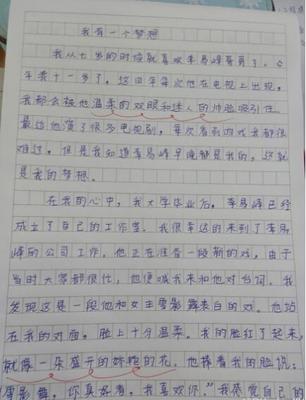 我有一个梦想
我从七岁的时候就喜欢李易峰哥哥了。今
年我十一岁了，这四年每次他在电视上出现，
我都会被他温柔的双眼和迷人的帅脸吸引住
最近他演了很多电视剧，每次看吻戏我都很
难过，但是我知道李易峰早晚都是我的，这就
是我的梦想。
在我的心中，我大学毕业后，李易峰已经
成立了自己的工作室，我很幸运的来到了李易
峰的公司工作，他正在准备一段新的戏，由于
当时大家都很忙，他便喊我来和他对台词。我
发现这是一段他和女主雪影舞表白的戏。他站
在我的对面，脸上十分温柔。我的脸红了起来，
就像一朵盛开的娇艳的花，他捧着我的脸说：
“雪影舞，你真好看，我喜欢你。”我感觉自己的